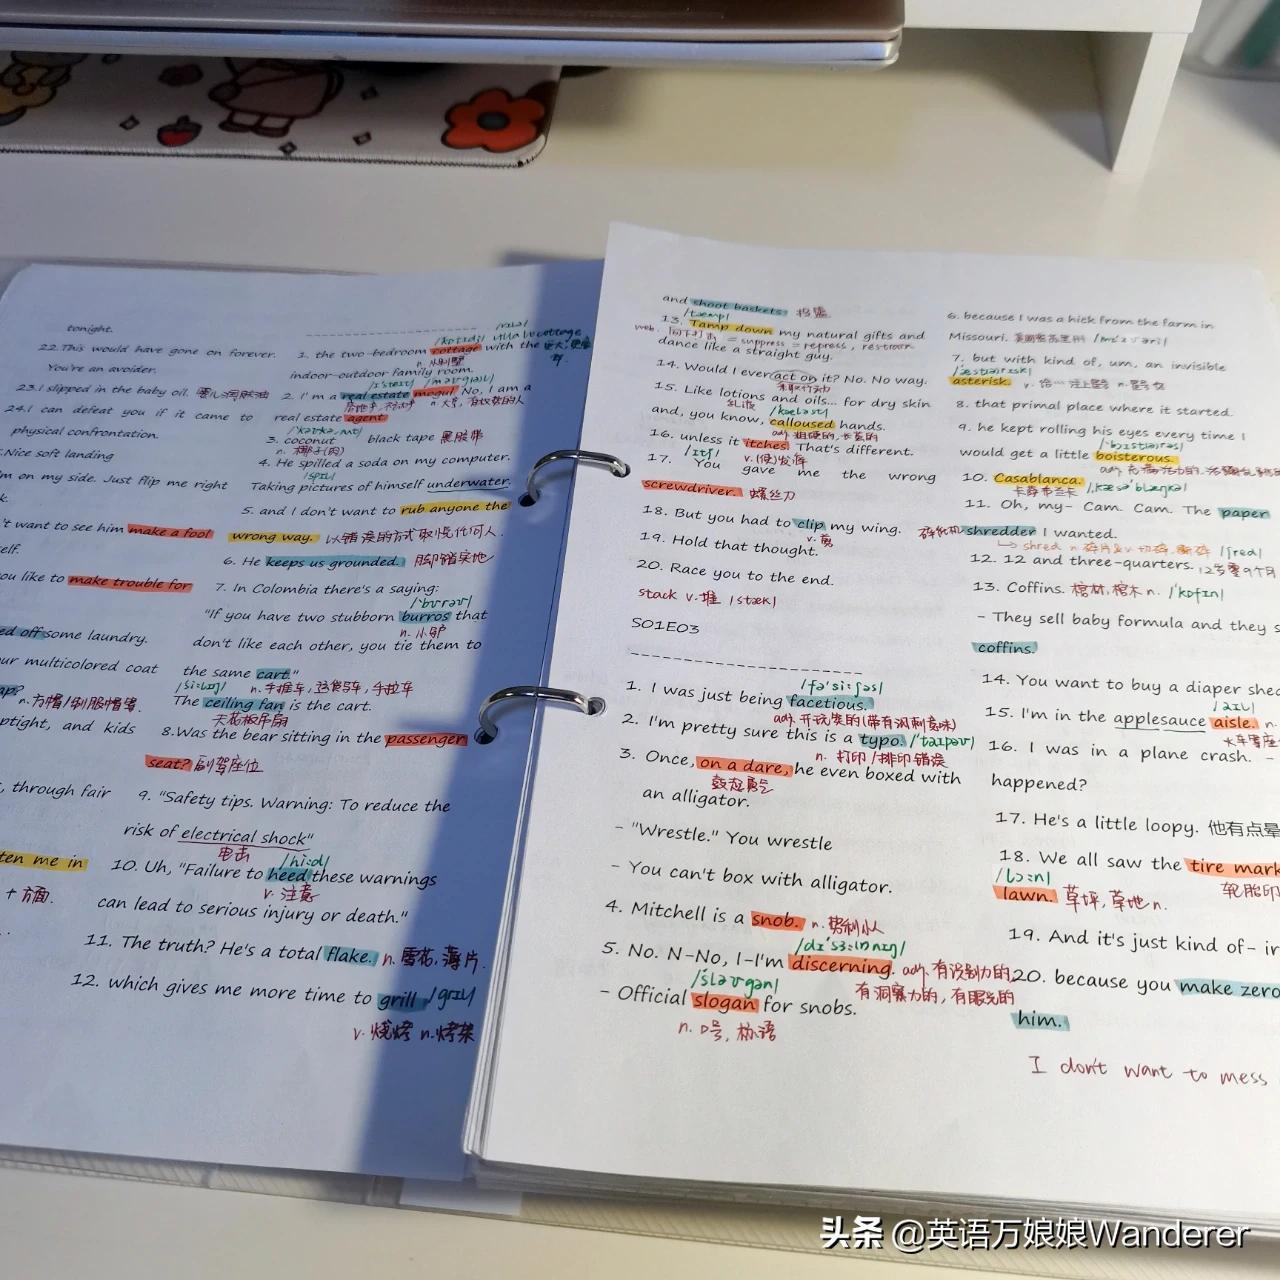 tonight.
22. This would have gone on forever.
You're an avoider.
23. I slipped in the baby oil. 婴儿润肤油
24. I can defeat you if it came to
physical confrontation.
Nice soft landing
m on my side. Just flip me right
k.
't want to see him make a fool
self.
ou like to make trouble for
ed off some laundry.
ur multicolored coat
ap?
n. 方帽/制服帽等
ptight, and kids
, through fair
ten me in
+ 方面.
1. the two-bedroom cottage with the
indoor-outdoor family room.
2. I'm a real estate mogul No, I am a
n. 大亨, 有权势的人
real estate agent
3. coconut black tape 黑胶带
n. 椰子(肉)
4. He spilled a soda on my computer.
/spɪl/
Taking pictures of himself underwater.
5. and I don't want to rub anyone the
wrong way. 以错误的方式取悦任何人.
6. He keeps us grounded. 脚踏实地
7. In Colombia there's a saying:
"If you have two stubborn burros that
n. 小驴
don't like each other, you tie them to
the same cart."
n. 手推车, 运货马车, 手拉车
/siːlɪŋ/
The ceiling fan is the cart.
天花板吊扇
8. Was the bear sitting in the passenger
seat? 副驾座位
9. "Safety tips. Warning: To reduce the
risk of electrical shock"
电击
/hiːd/
10. Uh, "Failure to heed these warnings
v. 注意
can lead to serious injury or death."
11. The truth? He's a total flake. n. 雪花, 薄片.
12. which gives me more time to grill /grɪl/
v. 烧烤 n. 烤架
and shoot baskets. 投篮
/tæmp/
13. Tamp down my natural gifts and
= suppress = repress, restrain
dance like a straight guy.
14. Would I ever act on it? No. No way.
采取行动
15. Like lotions and oils... for dry skin
乳液
and, you know, calloused hands.
16. unless it itches. That's different.
/ɪtʃ/ v. (使)发痒
17. You gave me the wrong
screwdriver. 螺丝刀
18. But you had to clip my wing.
v. 剪
19. Hold that thought.
20. Race you to the end.
stack v. 堆 /stæk/
S01E03
/fə'siːʃəs/
1. I was just being facetious.
adj. 开玩笑的(带有讽刺意味)
2. I'm pretty sure this is a typo. /'taɪpəʊ/
n. 打印/排印错误
3. Once, on a dare, he even boxed with
鼓起勇气
an alligator.
- "Wrestle." You wrestle
- You can't box with alligator.
4. Mitchell is a snob. n. 势利小人
/dɪ'sɜːnɪŋ/
5. No. N-No, I-I'm discerning. adj. 有识别力的
有洞察力的, 有眼光的
/'sləʊgən/
- Official slogan for snobs.
n. 口号, 标语
6. because I was a hick from the farm in
Missouri. 美国密苏里州
7. but with kind of, um, an invisible
asterisk.
8. that primal place where it started.
9. he kept rolling his eyes every time I
would get a little boisterous.
10. Casablanca.
卡萨布兰卡
11. Oh, my- Cam. Cam. The paper
碎纸机 shredder I wanted.
shred n. 碎片 v. 切碎, 撕碎 /ʃred/
12. 12 and three-quarters. 12岁零9个月
13. Coffins. 棺材, 棺木 n. /'kɒfɪn/
- They sell baby formula and they s
coffins.
14. You want to buy a diaper shed
/aɪl/
15. I'm in the applesauce aisle. n.
16. I was in a plane crash. -
happened?
17. He's a little loopy. 他有点晕
18. We all saw the tire mark
轮胎印
/lɔːn/
lawn. 草坪, 草地 n.
19. And it's just kind of- in
20. because you make zero
him.
I don't want to mess
头条 @英语万娘娘Wanderer